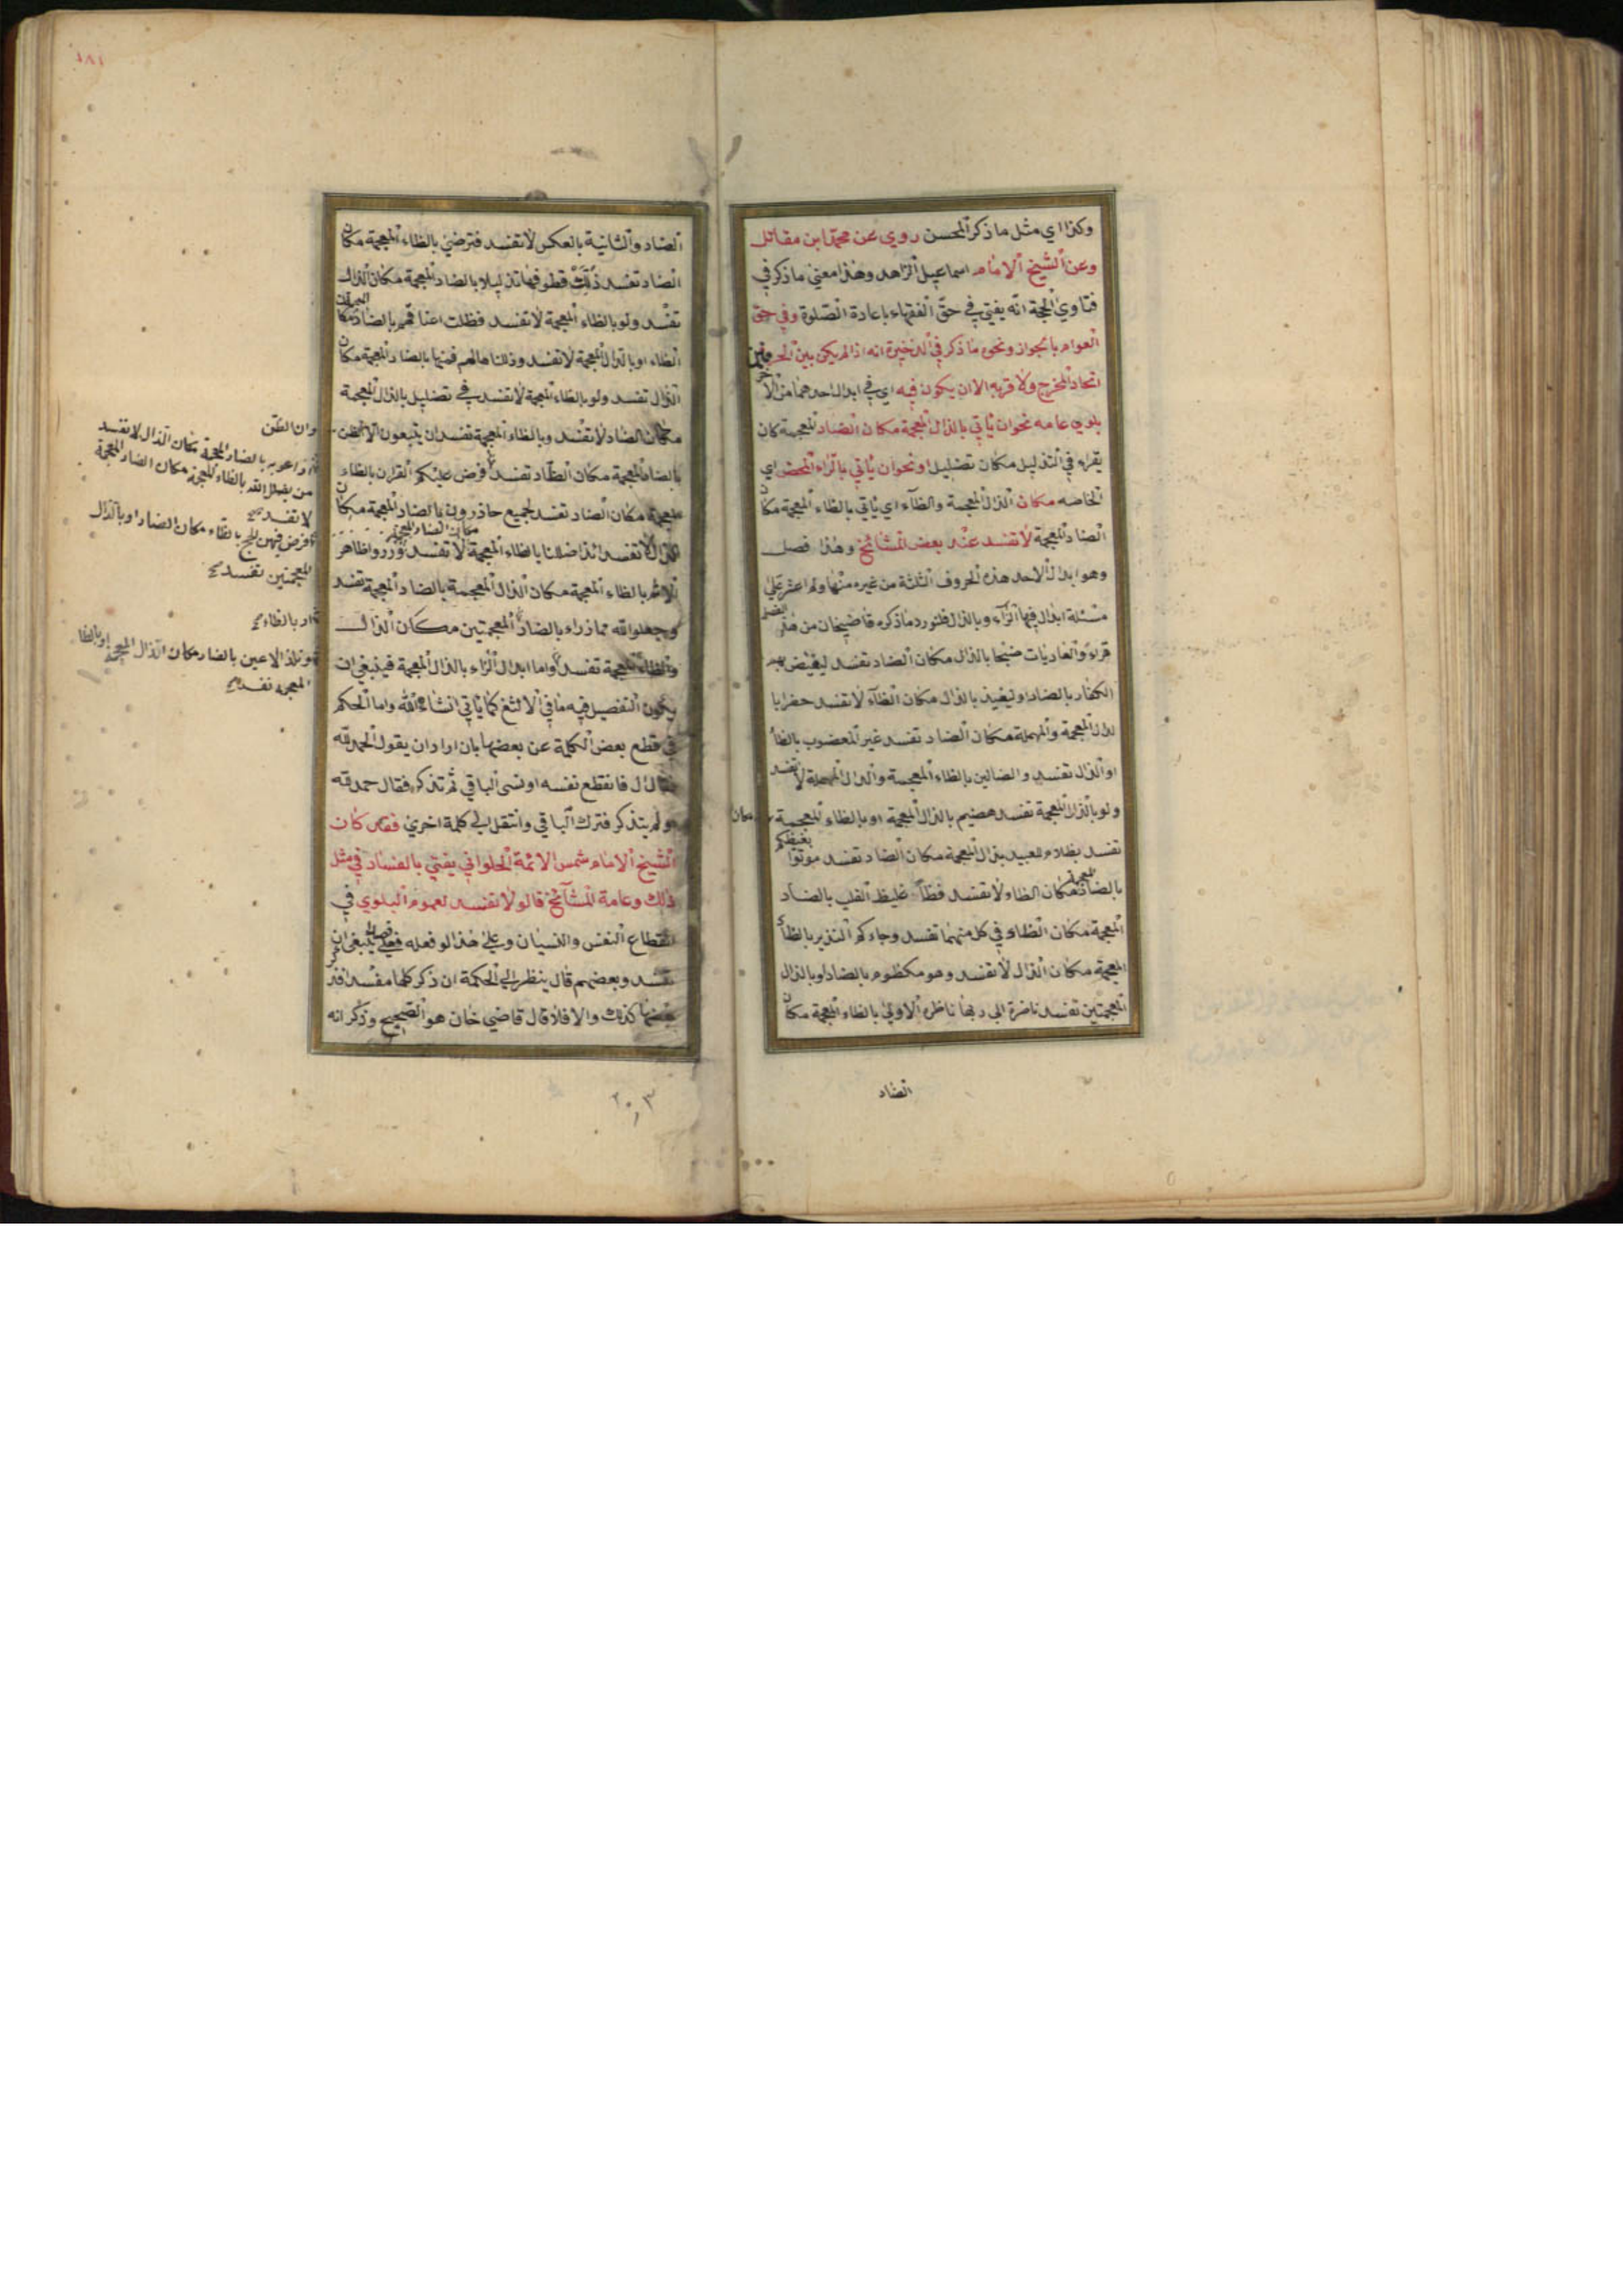 وكذا اي مثل ما ذكر المحسن روي عن محمد ابن مقاتل
وعن الشيخ الامام اسماعيل الزاهد وهذا معني ما ذكر في
فتاوي الحجة انه يفتي في حق الفقهاء باعادة الصلوة وفي حق
العوام بالجواز ونحو ما ذكر في الذخيرة انه اذا لم يكن بين الحرفين
اتحاد المخرج ولا قربه الا ان يكون فيه اي في ابدال احدهما من الاخر
بلوي عامه نحو ان ياتي بالذال المعجمة مكان الضاد المعجمة كان
يقراء في التذليل مكان تضليل او نحو ان ياتي بالزاء المحض اي
الخاصه مكان الذال المعجمة والظاء اي ياتي بالظاء المعجمة مكان
الضاد المعجمة لا تفسد عند بعض المشائخ وهذا فصل
وهو ابدال الاحد هذه الحروف الثلثة من غيره منها ولم اعثر علي
مسئلة ابدال فيها الزاء وبالذال فلنورد ما ذكره قاضيخان من هذا الفصل
قراء والعاديات ضبحا بالذال مكان الضاد تفسد ليغيض بهم
الكفار بالضاد او ليغيذ بالذال مكان الظاء لا تفسد حضرا با
لذال المعجمة والمهملة مكان الضاد تفسد غير المغضوب بالظاء
او الذال تفسد والضالين بالظاء المعجمة والدال المهملة لا تفسد
ولو بالذال المعجمة تفسد هضيم بالذال المعجمة او بالظاء المعجمة مكان
تفسد بظلام للعبيد بذال المعجمة مكان الضاد تفسد موتوا بغيظكم
بالضاد المعجمة مكان الظاء ولا تفسد فظا غليظ القلب بالضاد
المعجمة مكان الظاء في كل منهما تفسد وجاءكم النذير بالظاء
المعجمة مكان الذال لا تفسد وهو مكظوم بالضاد او بالذال
المعجمتين تفسد ناضرة الي ربها ناظره الاولي بالظاء المعجمة مكان
الضاد
الضاد والثانية بالعكس لا تفسد فترضي بالظاء المعجمة مكان
الضاد تفسد ذللت قطوفها تذليلا بالضاد المعجمة مكان الذال
تفسد ولو بالظاء المعجمة لا تفسد فظلت اعناقهم بالضاد مكان
الظاء او بالذال المعجمة لا تفسد وذللناها لهم فمنها بالضاد المعجمة مكان
الذال تفسد ولو بالظاء المعجمة لا تفسد في تضليل بالذال المعجمة
مكان الضاد لا تفسد وبالظاء المعجمة تفسد ان يتبعون الا الظن
بالضاد المعجمة مكان الظاد تفسد فرض عليكم القران بالظاء
المعجمة مكان الضاد تفسد لجميع حاذرون بالضاد المعجمة مكان
الذال لا تفسد ائذا ضللنا بالظاء المعجمة مكان الضاد المعجمة لا تفسد وذروا ظاهر
الاثم بالظاء المعجمة مكان الذال المعجمة بالضاد المعجمة تفسد
وجعلوا لله مما ذراء بالضاد المعجمتين مكان الذال
والظاء المعجمة تفسد واما ابدال الزاء بالذال المعجمة فينبغي ان
يكون التفصيل فيه ما في الالثغ كما ياتي انشاء الله واما الحكم
في قطع بعض الكلمة عن بعضها بان اراد ان يقول الحمد لله
فقال ال فانقطع نفسه او نسي الباقي ثم تذكر فقال حمد لله
او لم يتذكر فترك الباقي وانتقل الي كلمة اخري فقد كان
الشيخ الامام شمس الائمة الحلواني يفتي بالفساد في مثل
ذلك وعامة المشائخ قالو لا تفسد لعموم البلوي في
انقطاع النفس والنسيان وعلي هذا لو فعله قصدا ينبغي ان
تفسد وبعضهم قال ينظر الي الحكمة ان ذكر كلها مفسد فذكر
بعضها كذلك والا فلا قال قاضي خان هو الصحيح وذكر انه
وان الظن
من يضلل الله بالظاء المعجمة مكان الضاد المعجمة
لا تفسد
فرض فيهن الحج بالظاء مكان الضاد او بالذال
المعجمتين تفسد
وتلذ الاعين بالضاد مكان الذال المعجمة او بالظاء
المعجمة تفسد